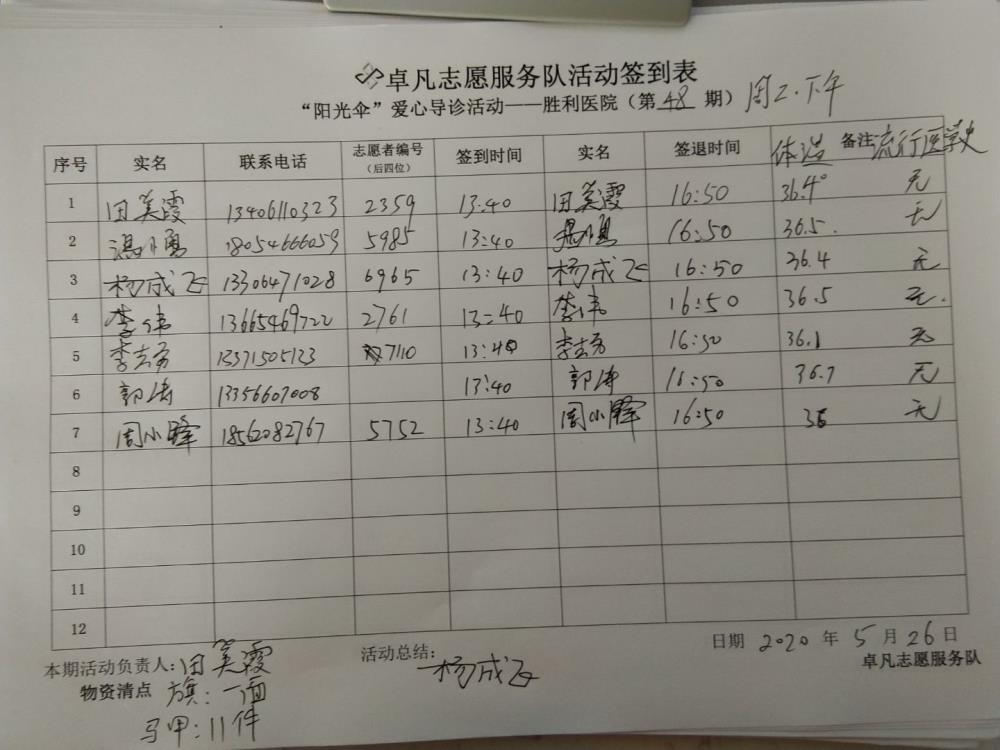 卓凡志愿服务队活动签到表
“阳光伞”爱心导诊活动——胜利医院（第 48 期） 周二.下午
序号 实名 联系电话 志愿者编号（后四位） 签到时间 实名 签退时间 体温 备注 流行医学史
1 田美霞 13406110323 2359 13:40 田美霞 16:50 36.4° 无
2 冯小勇 18054666059 5985 13:40 16:50 36.5. 无
3 杨成飞 13306471028 6965 13:40 杨成飞 16:50 36.4 无
4 李伟 13665469722 2761 13:40 李伟 16:50 36.5 无.
5 李志勇 13371505123 7110 13:40 李志勇 16:50 36.1 无
6 郭涛 13356607008 13:40 郭涛 16:50 36.7 无
7 周小峰 18562082767 5752 13:40 周小峰 16:50 36 无
8
9
10
11
12
日期 2020 年 5 月 26 日
本期活动负责人:田美霞 活动总结: 杨成飞 卓凡志愿服务队
物资清点 旗:一面
马甲:11件